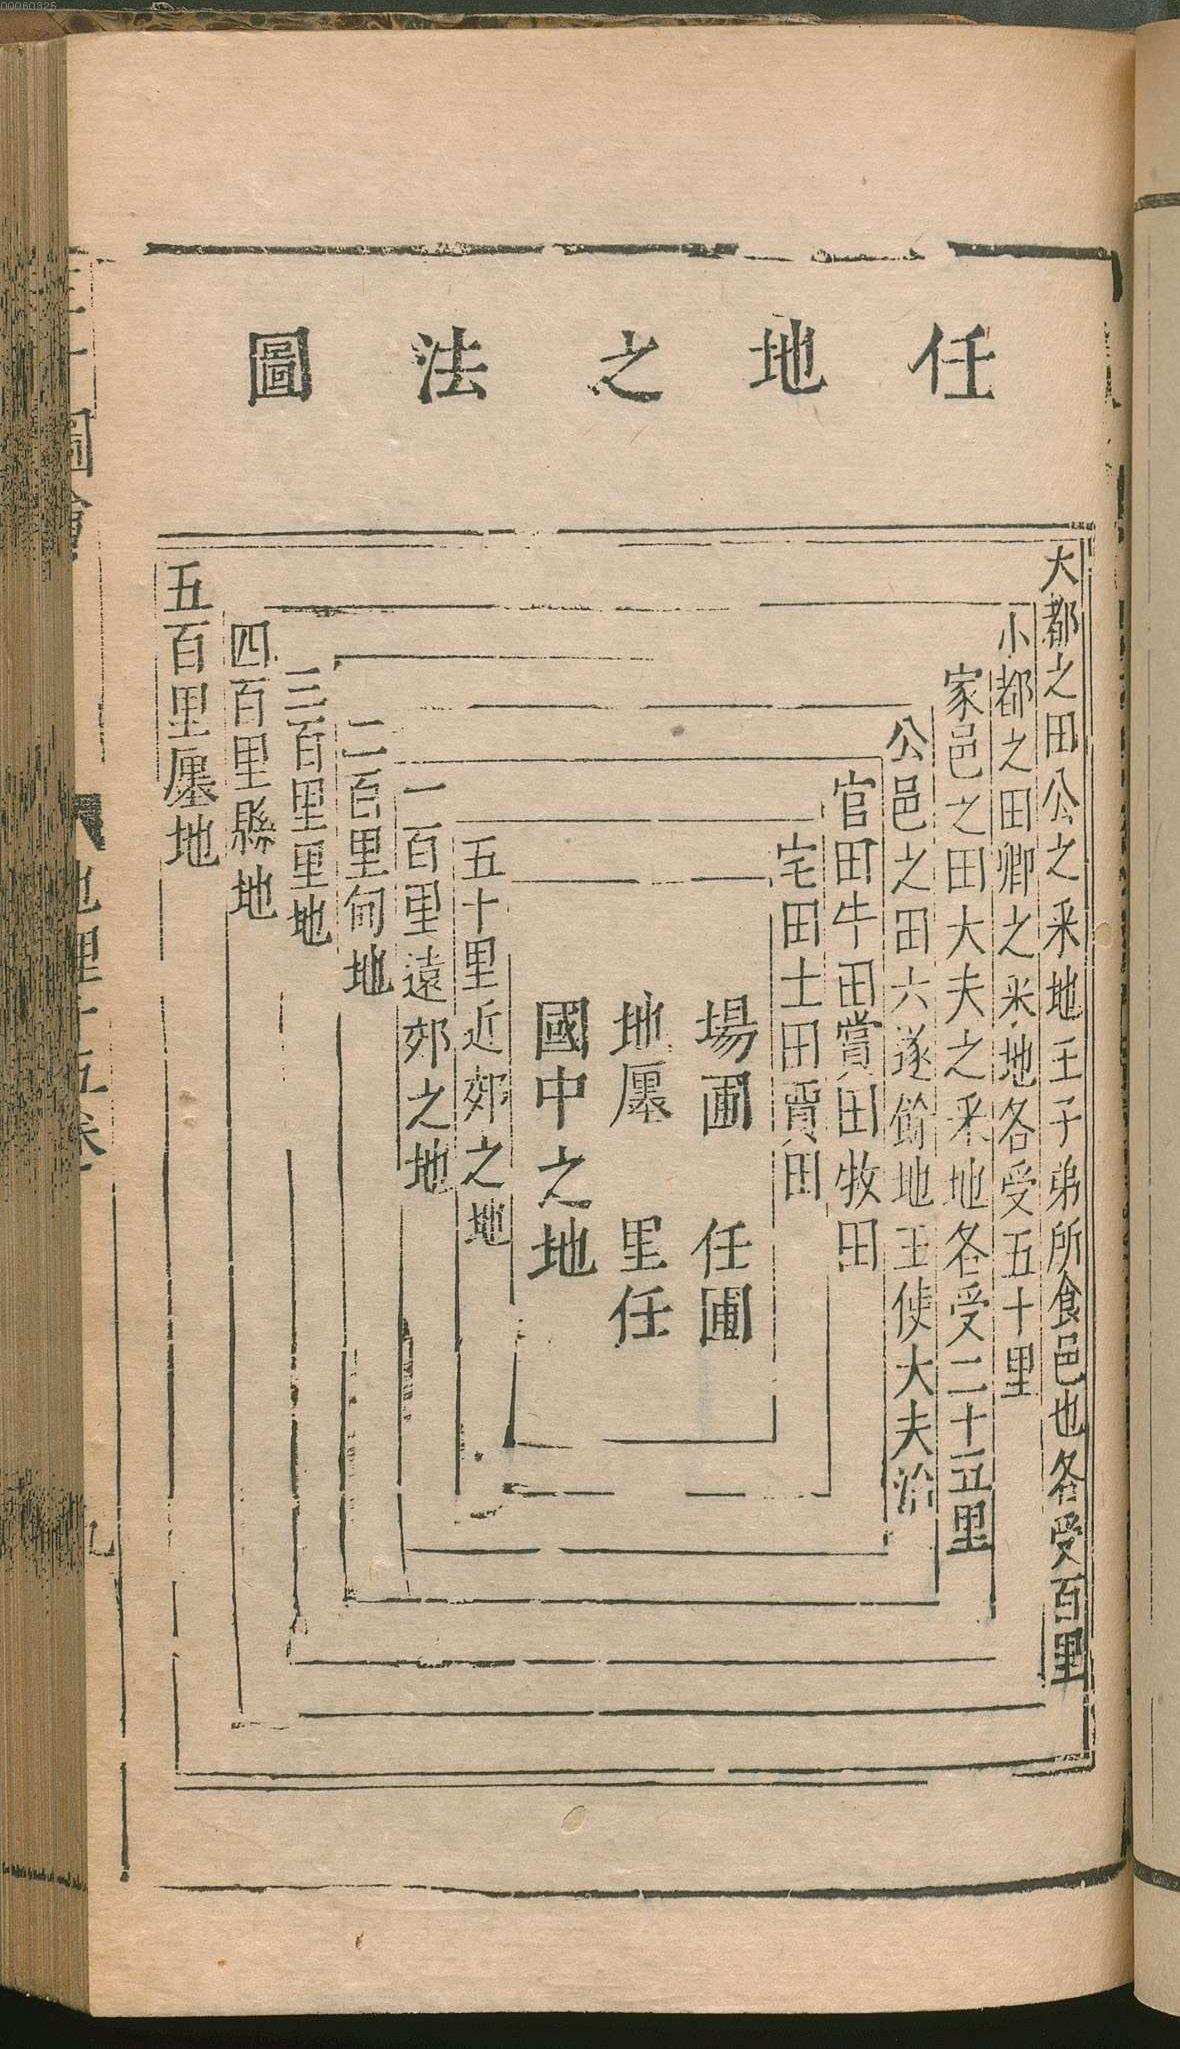 00060325
任地之法圖
大都之田公之釆地王子弟所食邑也各受百里
小都之田卿之釆地各受五十里
家邑之田大夫之釆地各受二十五里
公邑之田六遂餘地王使大夫治
官田牛田賞田牧田
宅田士田賈田
場圃 任圃
地廛 里任
國中之地
五十里近郊之地
一百里遠郊之地
二百里甸地
三百里里地
四百里縣地
五百里廛地
三才圖會
地理十五卷
九